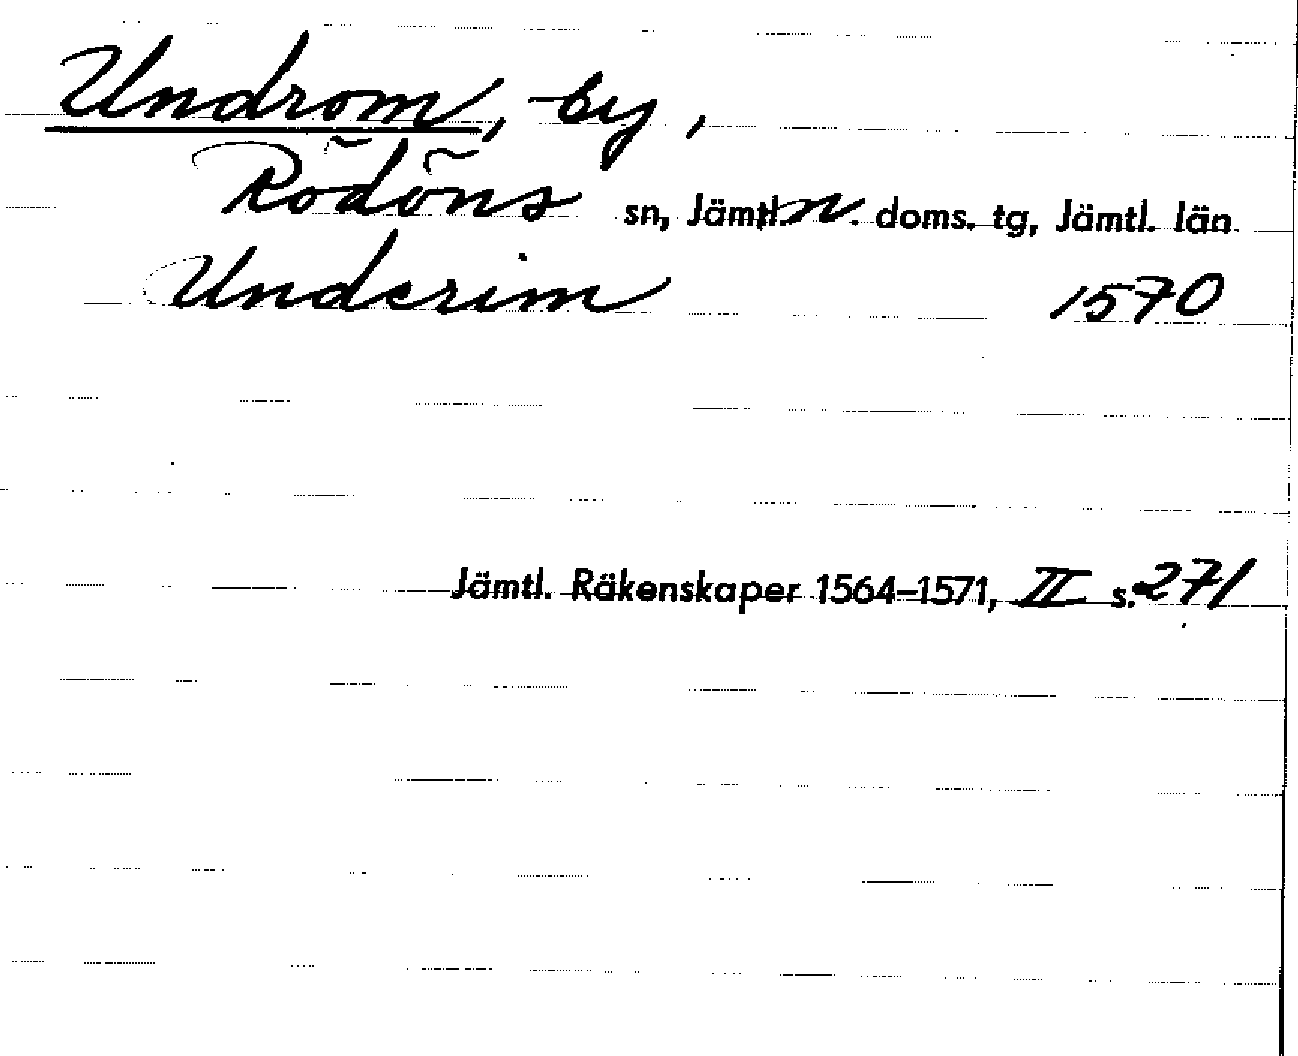 Undrom, by,
Rödöns sn, Jämtl. n. doms. tg, Jämtl. län
Underim 1570
Jämtl. Räkenskaper 1564–1571, II s. 271